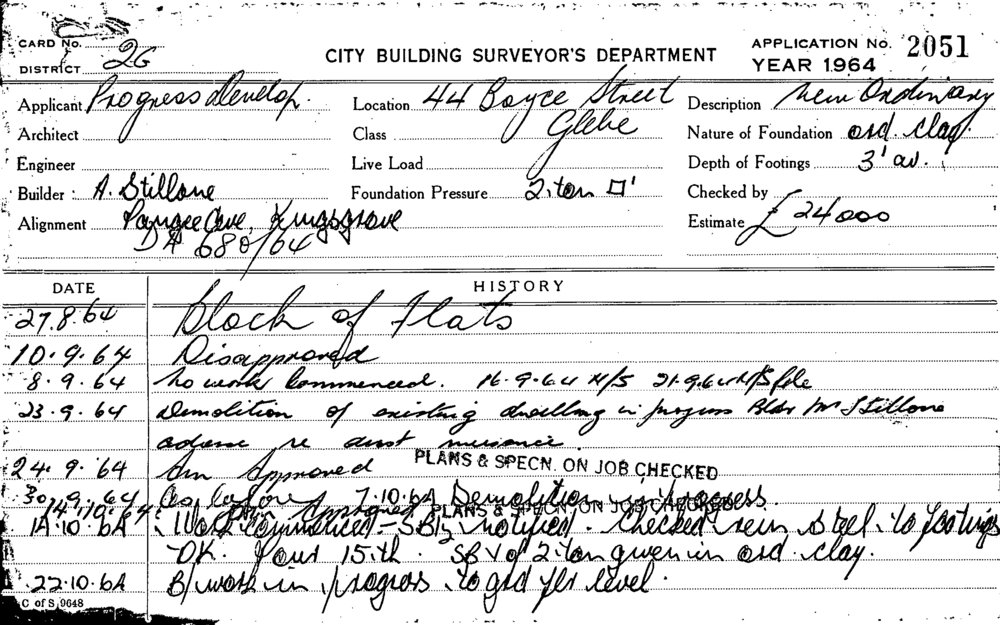 CARD No.
DISTRICT 26
CITY BUILDING SURVEYOR'S DEPARTMENT
APPLICATION No. 2051
YEAR 1964
Applicant Progress Develop.
Location 44 Boyce Street
Glebe
Description New Ordinary
Architect
Class
Nature of Foundation ord. clay.
Engineer
Live Load
Depth of Footings 3' av.
Builder : A. Stillone
Foundation Pressure 2 ton □'
Checked by
Alignment Kingsgrove
Estimate £24000
DA 680/64
DATE HISTORY
27.8.64 Block of Flats
10.9.64 Disapproved
8.9.64 No work commenced. 16.9.64 N/S 21.9.64 N/S file
23.9.64 Demolition of existing dwelling in progress Bldr Mr Stillone
advise re dust nuisance
24.9.64 Approved PLANS & SPECN. ON JOB CHECKED
30.9.64 As before 7.10.64 Demolition in progress.
14.10.64 Approved PLANS & SPECN. ON JOB CHECKED
14.10.64 Work commenced - notified. Checked rein. steel to footings
- OK. Pour 15th. SBV of 2 ton given in ord. clay.
22.10.64 B/work in progress to grd flr level.
C of S 9648